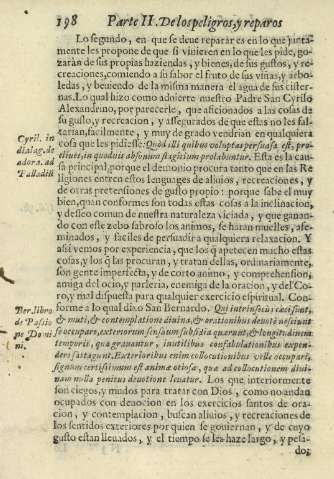 198 Parte II. De los peligros, y reparos
Lo segundo, en que se deue reparar es en lo que junta-
mente les propone de que si vinieren en lo que les pide, go-
zaràn de sus propias haziendas, y bienes, de sus gustos, y re-
creaciones, comiendo a su sabor el fruto de sus viñas, y arbo-
ledas, y beuiendo de la misma manera el agua de sus cister-
nas. Lo qual hizo como aduierte nuestro Padre San Cyrilo
Alexandrino, por parecerle, que aficionados a las cosas de
su gusto, y recreacion, y assegurados de que estas no les fal-
tarian, facilmente, y muy de grado vendrian en qualquiera
Cyril. in
dialog. de
adora. ad
Palladiũ
cosa que les pidiesse: Quòd illi quibus voluptas persuasa est, pro-
cliues, in quoduis absonum flagitium prolabuntur. Esta es la cau-
sa principal, porque el demonio procura tanto que en las Re
ligiones entren estos lenguages de aliuios, recreaciones, y
de otras pretensiones de gusto propio: porque sabe el muy
bien, quan conformes son todas estas cosas a la inclinacion,
y desseo comun de nuestra naturaleza viciada, y que ganan-
do con este zebo sabroso los animos, se haràn muelles, afe-
minados, y faciles de persuadir a qualquiera relaxacion. Y
assi vemos por experiencia, que los q̃ apetecen mucho estas
cosas, y los q̃ las procuran, y tratan dellas, ordinariamente,
son gente imperfecta, y de corto animo, y comprehension,
amiga del ocio, y parleria, enemiga de la oracion, y del Co-
ro, y mal dispuesta para qualquier exercicio espiritual. Con-
forme a lo qual dixo San Bernardo. Qui intrinsecùs cæci sunt,
Ber. libro
de Passio
ne Domi
ni.
& muti, & contemplationi diuina, & orationibus deuotè nesciunt
se occupare, exteriorum sensuum subsidia querunt, & longitudinem
temporis, qua grauantur, inutilibus confabulationibus expen-
dere satagunt. Exterioribus enim collocutionibus velle occupari,
signum certissimum est anima otiosa, qua ad collocutionem diui-
nam nulla penitus deuotione leuatur. Los que interiormente
son ciegos, y mudos para tratar con Dios, como no andan
ocupados con deuocion en los exercicios santos de ora-
cion, y contemplacion, buscan aliuios, y recreaciones de
los sentidos exteriores por quien se gouiernan, y de cuyo
gusto estan lleuados, y el tiempo se les haze largo, y pesa-
do: